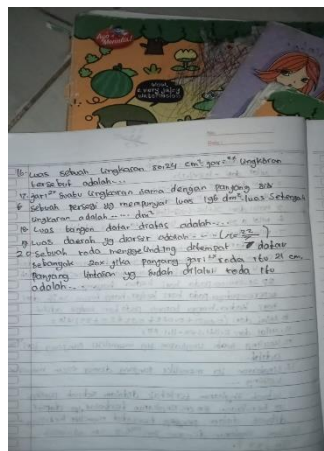 Ayo Mewarnai
Wow,
a very juicy
watermelon
16 Luas sebuah lingkaran 30,24 cm² jari²nya lingkaran
tersebut adalah....
17 jari² suatu lingkaran sama dengan panjang sisi
sebuah persegi yg mempunyai luas 196 dm² luas setengah
lingkaran adalah.... dm²
18 Luas bangun datar diatas adalah....
19 Luas daerah yg diarsir adalah.... (π = 22/7)
20 Sebuah roda menggelinding ditempat datar
sebanyak 20x jika panjang jari² roda itu 21 cm
Panjang lintasan yg sudah dilalui roda itu
adalah....